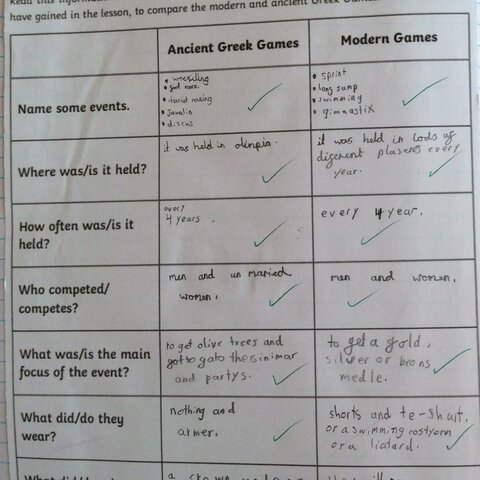 Read this informa
have gained in the lesson, to compare the modern and ancient Greek Games.
Ancient Greek Games
Modern Games
Name some events.
• wresiling
• foot race
• chariot rasing
• Javalin
• discas
• sprint
• long jump
• swimming
• gimnastix
Where was/is it held?
it was held in olimpia.
it was held in lods of
digerent plasens every
year.
How often was/is it
held?
every
4 years.
every 4 year.
Who competed/
competes?
men and un maried
women.
men and women.
What was/is the main
focus of the event?
to get olive trees and
got to
and partys.
to get a gold,
silver or brons
medle.
What did/do they
wear?
nothing and
armer.
shorts and te-shurt,
or a swimming costyom
or a liatard.
a crown